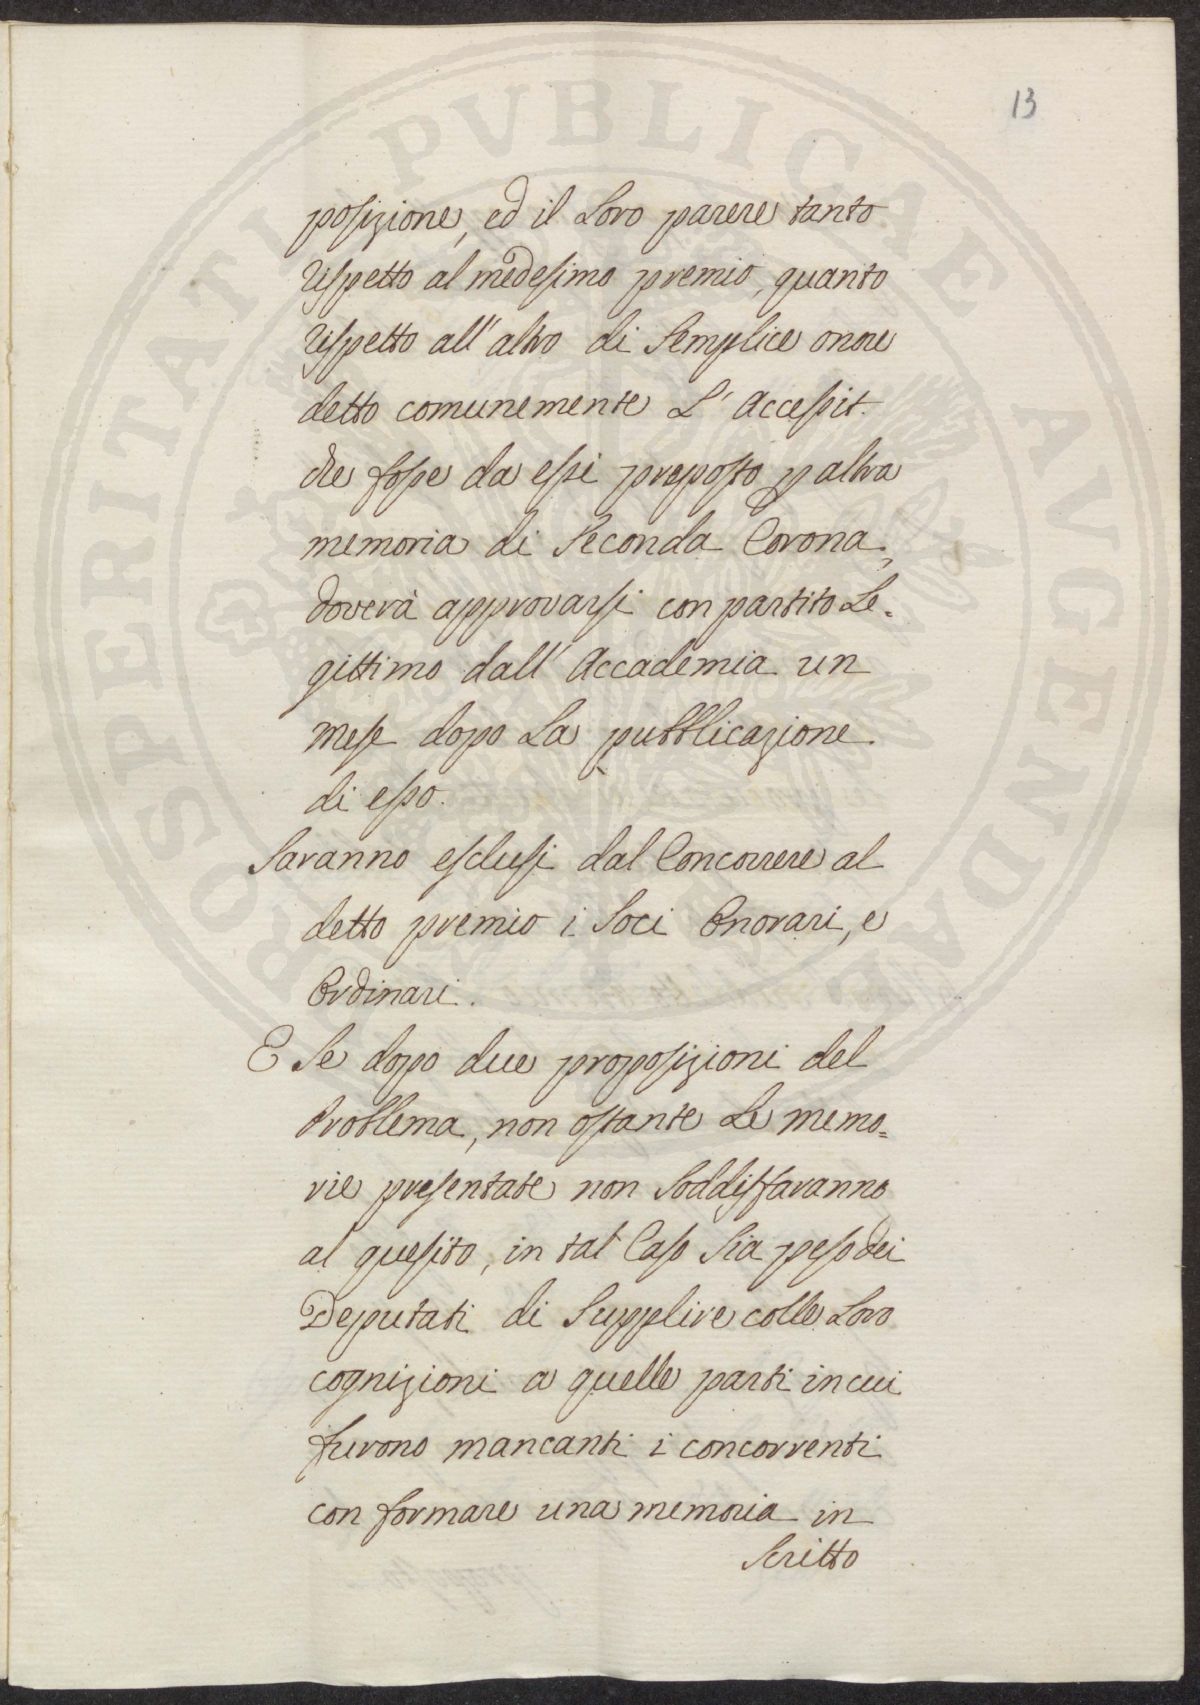 13
PROSPERITATI PVBLICAE AVGENDAE
posizione, ed il Loro parere tanto
rispetto al medesimo premio, quanto
rispetto all'altro di Semplice onore
detto comunemente L'Accessit.
che fosse da essi proposto p altra
memoria di Seconda Corona,
doverà approvarsi con partito Le=
gittimo dall'Accademia un
mese dopo La pubblicazione
di esso.
Saranno esclusi dal Concorrere al
detto premio i Soci Onorari, e
Ordinari.
E Se dopo due proposizioni del
Problema, non ostante Le memo=
rie presentate non Soddisfaranno
al quesito, in tal Caso Sia peso dei
Deputati di Supplire colle Loro
cognizioni a quelle parti in cui
furono mancanti i concorrenti
con formare una memoria in
Scritto